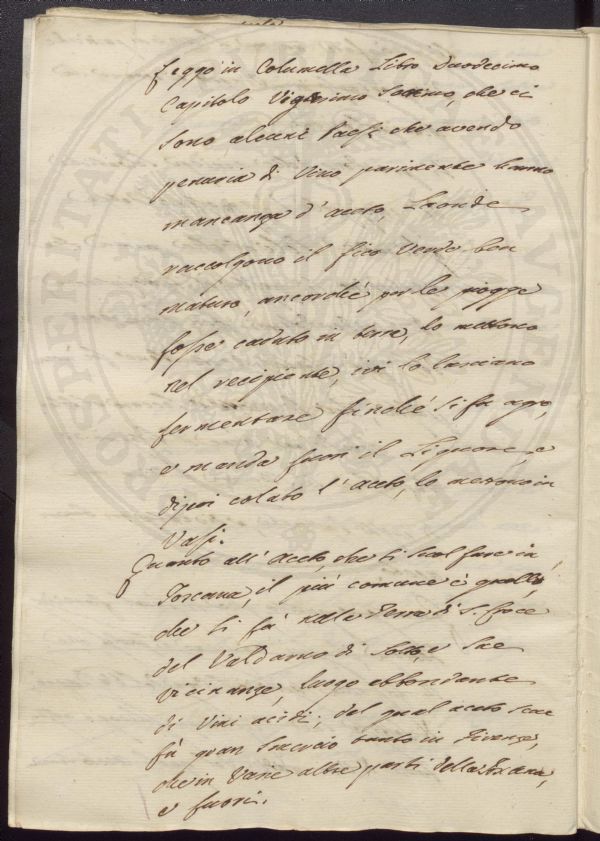 Leggo in Columella Libro Duodecimo
Capitolo Vigesimo Settimo, che ci
sono alcuni Paesi che avendo
penuria di Vino parimente hanno
mancanza d'aceto, laonde
raccolgono il fico Verde ben
maturo, ancorché per le piogge
fosse caduto in terra, lo mettono
nel recipiente, ivi lo lasciano
fermentare finché si fa agro,
e manda fuori il Liquore, e
dipoi colato l'Aceto, lo mettono in
Vasi.
Quanto all'Aceto, che si suol fare in
Toscana, il più comune è quello,
che si fà nella Terra di S. Croce
del Valdarno di Sotto, e sue
vicinanze, luogo abbondante
di Vini acidi; del qual aceto se ne
fà gran traccio tanto in Firenze,
che in Varie altre parti della Toscana,
e fuori.
ROSPERITATI AU